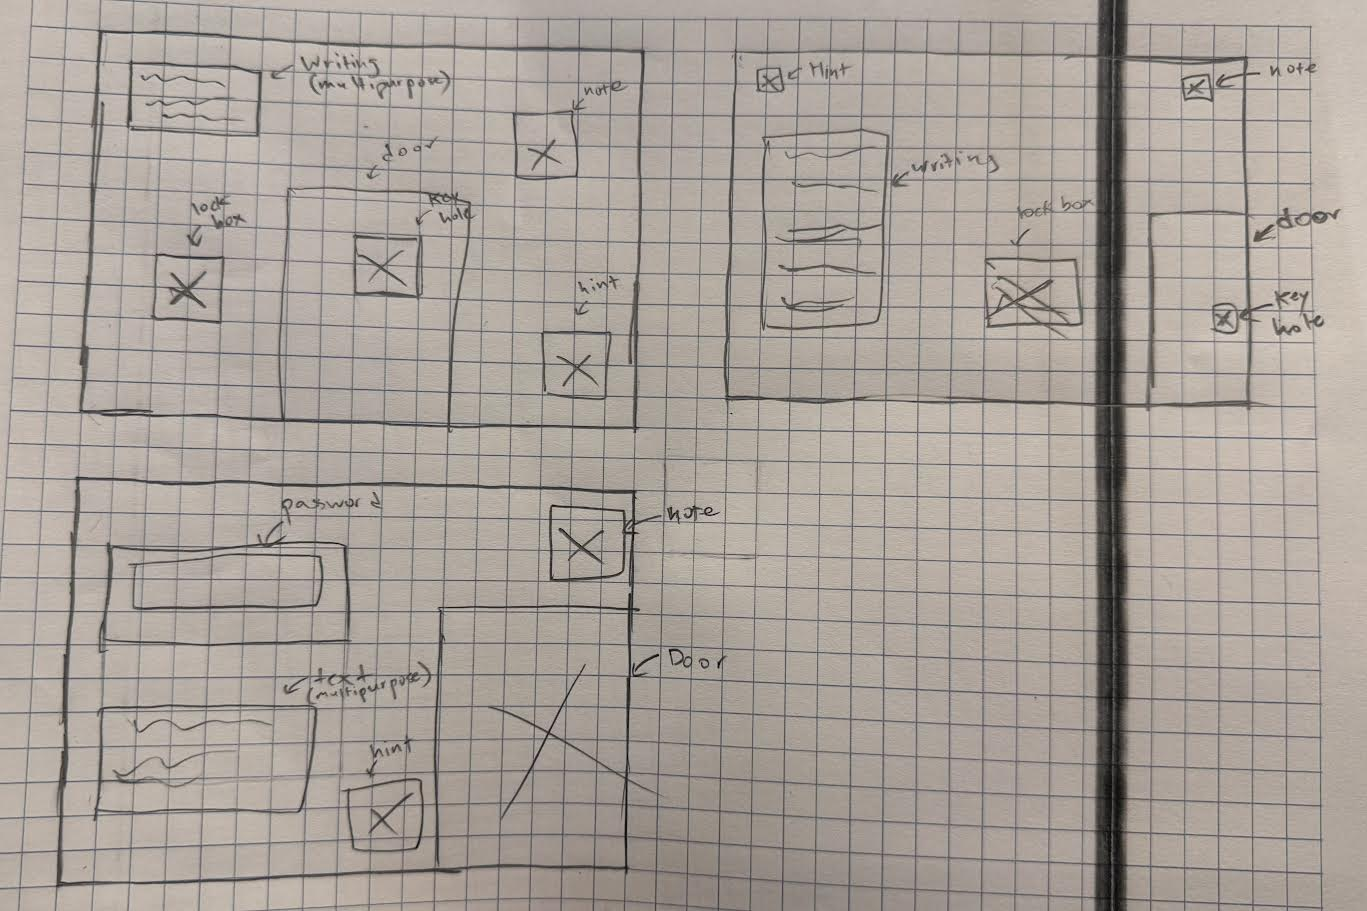 Writing
(multipurpose)
note
door
lock
box
key
hole
hint
Hint
note
writing
lock box
door
key
hole
password
note
text
(multipurpose)
Door
hint